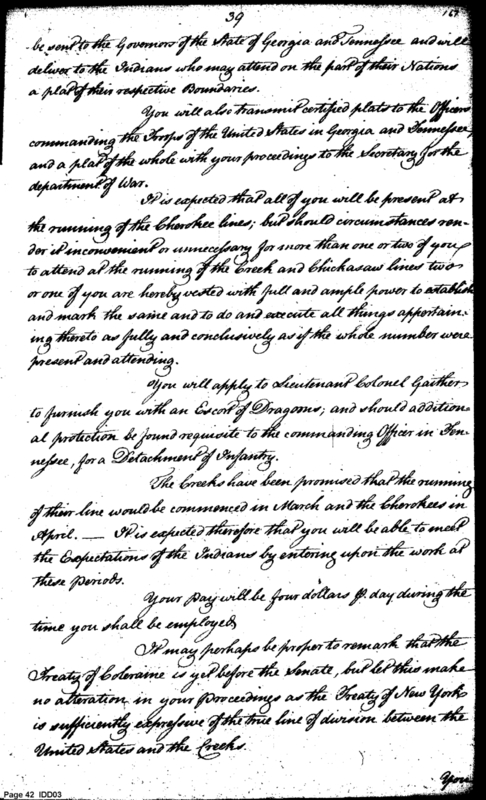 39
167
be sent to the Governors of the State of Georgia and Tennessee and will
deliver to the Indians who may attend on the part of their Nations
a plat of their respective Boundaries.
You will also transmit certified plats to the Officers
commanding the Troops of the United States in Georgia and Tennessee,
and a plat of the whole with your proceedings to the Secretary for the
department of War.
It is expected that all of you will be present at
the running of the Cherokee lines; but should circumstances ren-
der it inconvenient or unnecessary for more than one or two of you
to attend at the running of the Creek and Chickasaw lines two
or one of you are hereby vested with full and ample power to establish
and mark the same and to do and execute all things appertain-
ing thereto as fully and conclusively as if the whole number were
present and attending.
You will apply to Lieutenant Colonel Gaither
to furnish you with an Escort of Dragoons; and should addition-
al protection be found requisite to the commanding Officer in Ten-
nessee, for a Detachment of Infantry.
The Creeks have been promised that the running
of their line would be commenced in March and the Cherokees in
April. — It is expected therefore that you will be able to meet
the Expectations of the Indians by entering upon the work at
these periods.
Your Pay will be four dollars p. day during the
time you shall be employed
It may perhaps be proper to remark that the
Treaty of Coleraine is yet before the Senate, but let this make
no alteration in your Proceedings as the Treaty of New York
is sufficiently expressive of the true line of division between the
United States and the Creeks.
You
Page 42 IDD03